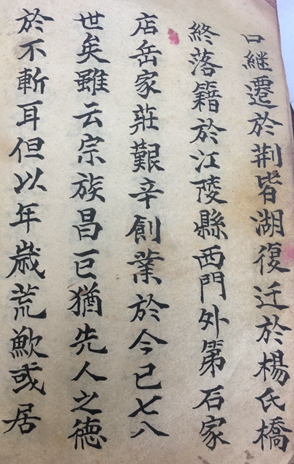 口繼遷於荆皆湖復迁於楊氏橋
終落籍於江陵縣西門外第石家
店岳家莊艱辛創業於今已七八
世矣雖云宗族昌巨猶先人之德
於不斬耳但以年歲荒歉或居